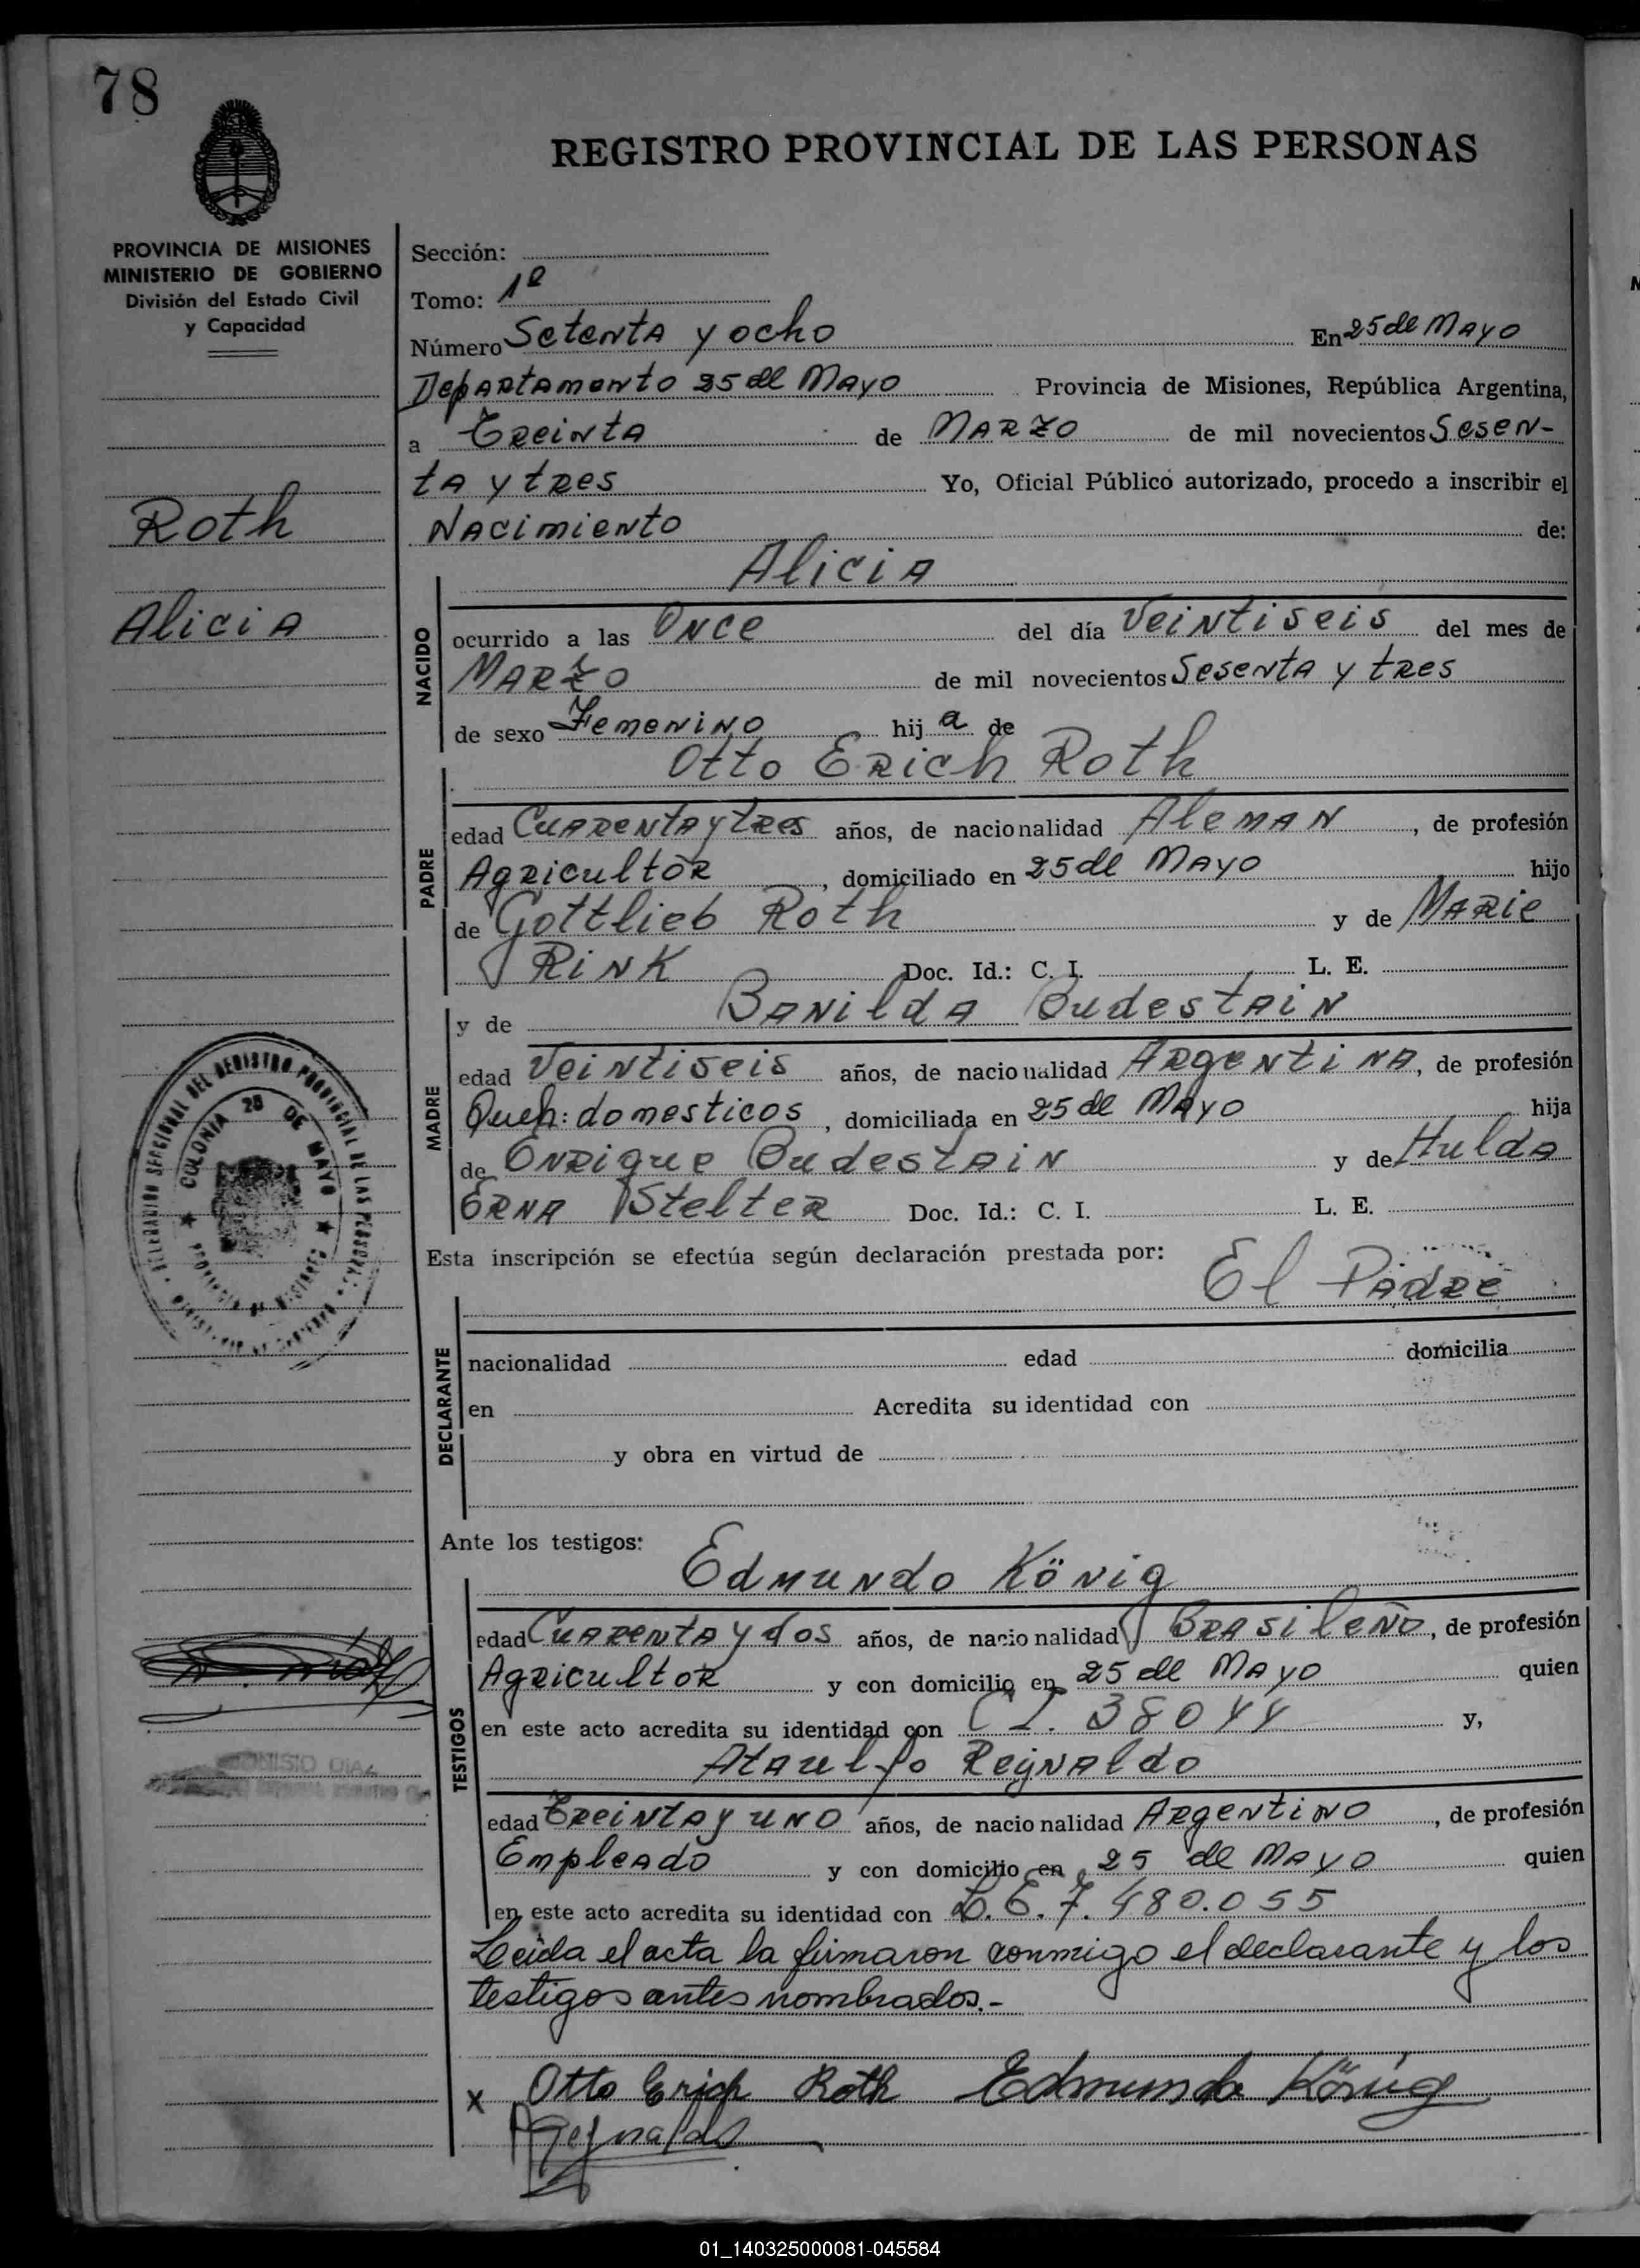 78
REGISTRO PROVINCIAL DE LAS PERSONAS
PROVINCIA DE MISIONES
MINISTERIO DE GOBIERNO
División del Estado Civil
y Capacidad
Roth
Alicia
COLONIA 25 DE MAYO
Sección:
Tomo: 1º
Número Setenta y ocho En 25 de Mayo
Departamento 25 de Mayo Provincia de Misiones, República Argentina,
a Treinta de Marzo de mil novecientos Sesen-
ta y tres Yo, Oficial Público autorizado, procedo a inscribir el
Nacimiento de:
Alicia
NACIDO
ocurrido a las Once del día Veintiseis del mes de
Marzo de mil novecientos Sesenta y tres
de sexo Femenino hija de
Otto Erich Roth
PADRE
edad Cuarenta y tres años, de nacionalidad Aleman, de profesión
Agricultor, domiciliado en 25 de Mayo hijo
de Gottlieb Roth y de Marie
Rink Doc. Id.: C. I. L. E.
y de Banilda Budestain
MADRE
edad Veintiseis años, de nacionalidad Argentina, de profesión
Queh: domesticos, domiciliada en 25 de Mayo hija
de Enrique Budestain y de Hulda
Erna Stelter Doc. Id.: C. I. L. E.
Esta inscripción se efectúa según declaración prestada por: El Padre
DECLARANTE
nacionalidad edad domicilia
en Acredita su identidad con
y obra en virtud de
Ante los testigos:
Edmundo König
TESTIGOS
edad Cuarenta y dos años, de nacionalidad Brasileño, de profesión
Agricultor y con domicilio en 25 de Mayo quien
en este acto acredita su identidad con C I. 38044 y,
Ataulfo Reynaldo
edad Treinta y uno años, de nacionalidad Argentino, de profesión
Empleado y con domicilio en 25 de Mayo quien
en este acto acredita su identidad con L. E. 7.480.055
Leida el acta la firmaron conmigo el declarante y los
testigos antes nombrados.-
x Otto Erich Roth Edmundo König
AReynaldo
01_140325000081-045584